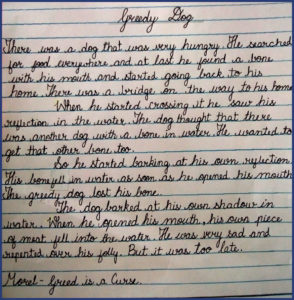 Greedy Dog
There was a dog that was very hungry. He searched
for food everywhere and at last he found a bone
with his mouth and started going back to his
home. There was a bridge on the way to his home
When he started crossing it he saw his
reflection in the water. The dog thought that there
was another dog with a bone in water. He wanted to
get that other bone too.
So he started barking at his own reflection.
His bone fell in water as soon as he opened his mouth
The greedy dog lost his bone.
The dog barked at his own shadow in
water. When he opened his mouth, his own piece
of meat fell into the water. He was very sad and
repented over his folly. But it was too late.
Morel - Greed is a Curse.